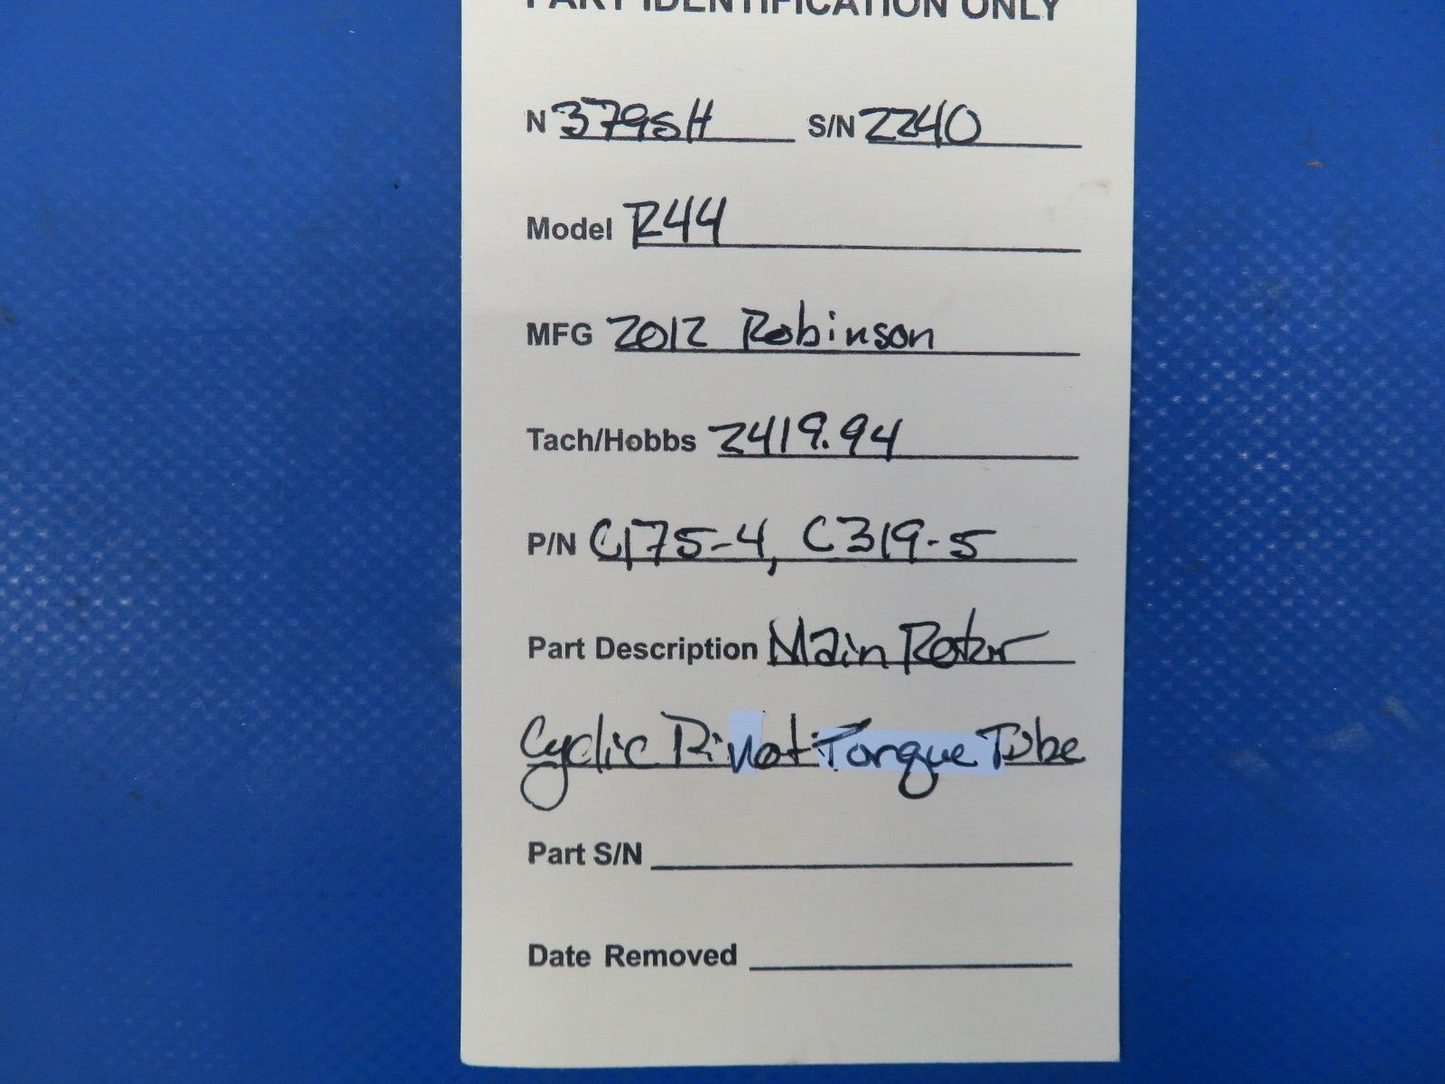 PART IDENTIFICATION ONLY
N 379SH S/N 2240
Model R44
MFG 2012 Robinson
Tach/Hobbs 2419.94
P/N C175-4, C319-5
Part Description Main Rotor
Cyclic Pivot Torque Tube
Part S/N
Date Removed